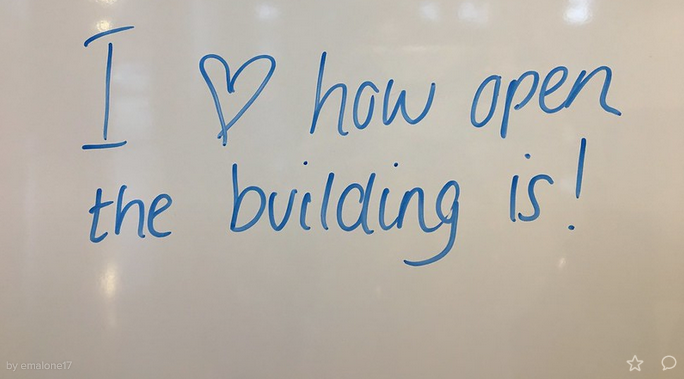 I ♡ how open
the building is!
by emalone17